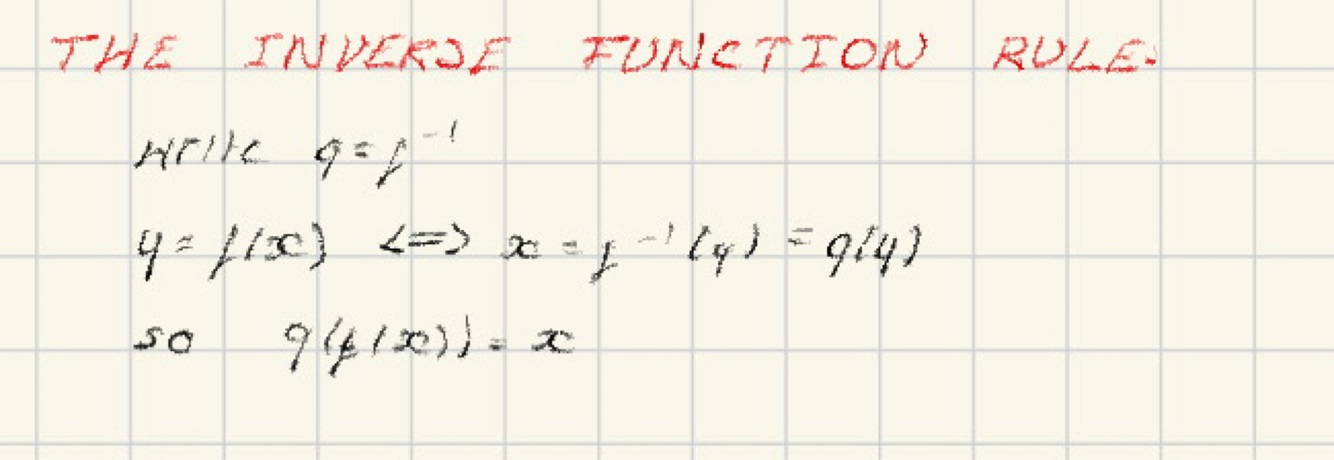 THE INVERSE FUNCTION RULE.
write g = f⁻¹
y = f(x) <=> x = f⁻¹(y) = g(y)
so g(f(x)) = x